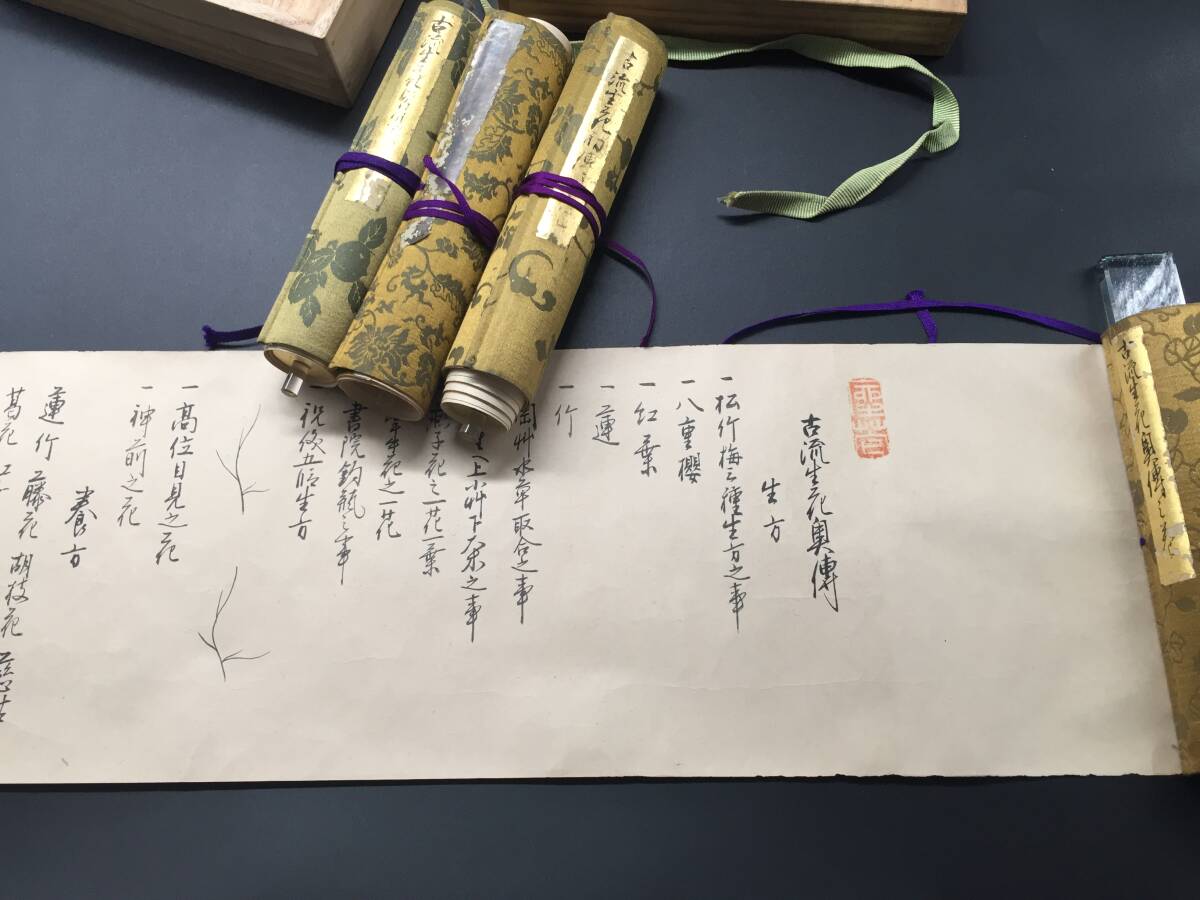 古流生花奥傳
生方
一松竹梅三種生方之事
一八重櫻
一紅葉
一蓮
一竹
艸水草取合之事
上小艸下大木之事
子花之一花一葉
花之一花
書院釣瓶之事
祝儀五節生方
一高位目見之花
一神前之花
養方
蓮 竹 藤花 胡枝花
葛花
古流生花奥傳之巻
古流生花初傳
古流生花